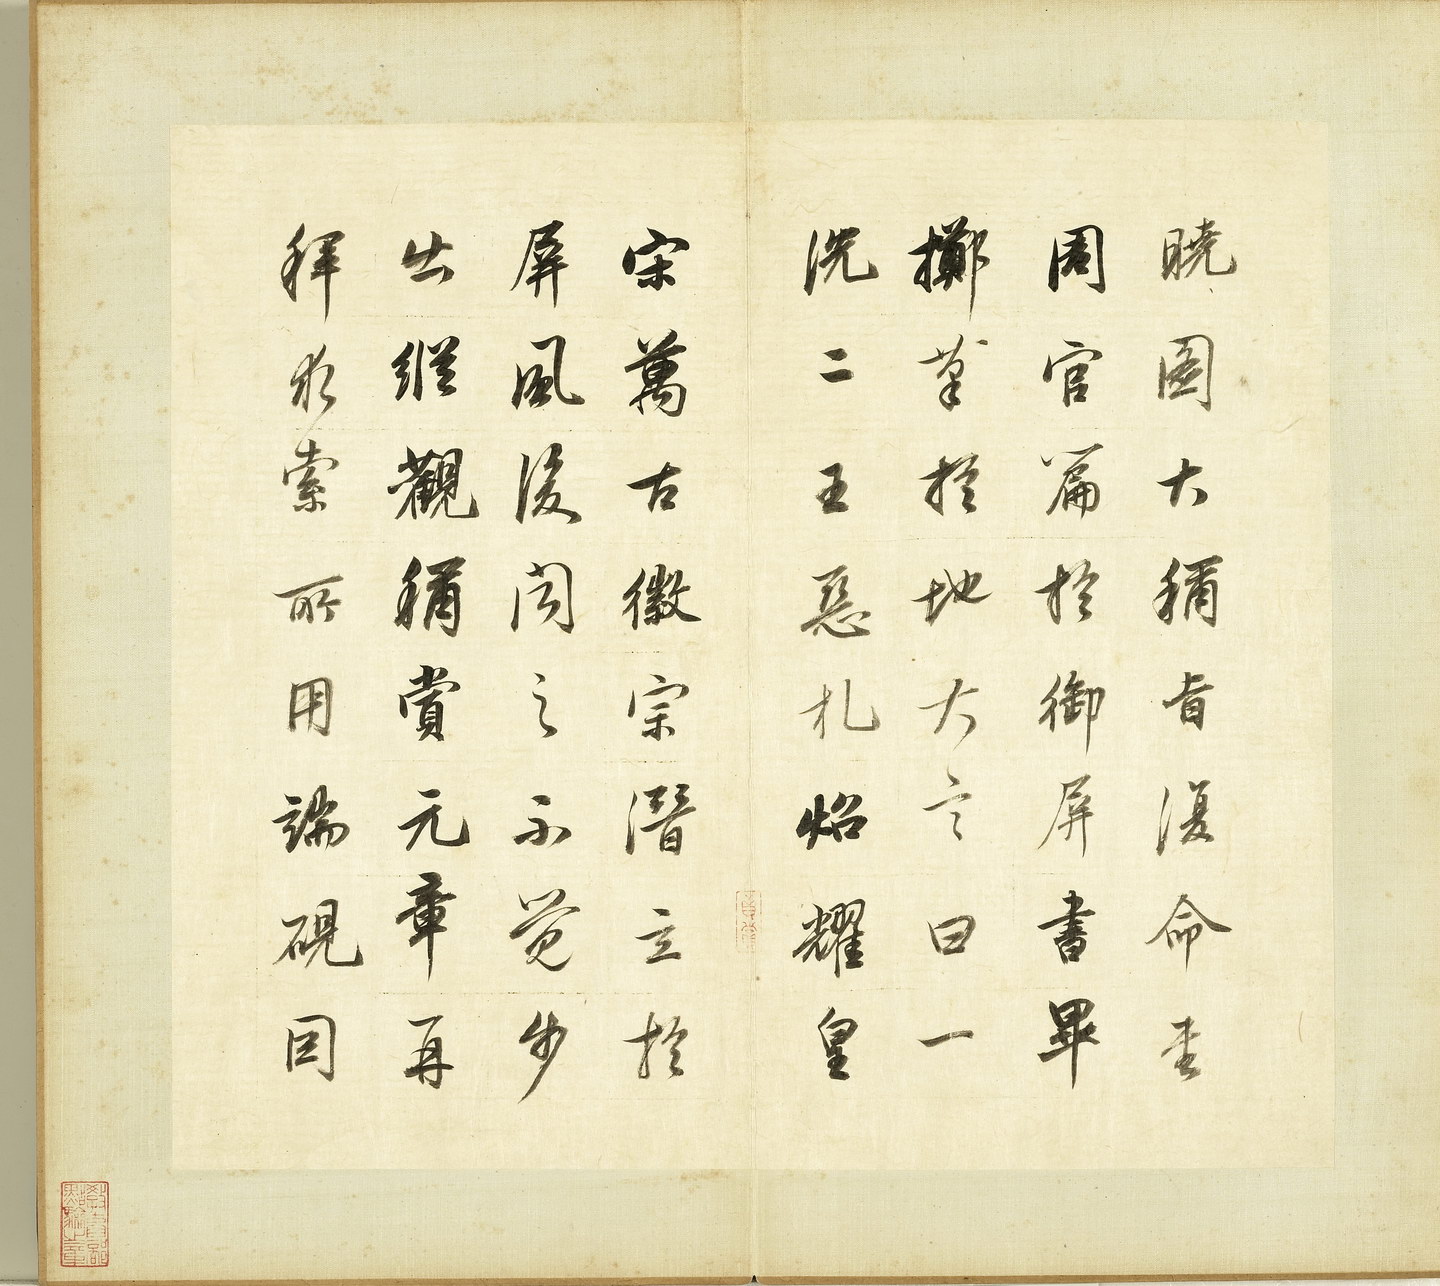 曉圖大稱旨復命書
周官篇於御屏書畢
擲筆於地大言曰一
洗二王惡札炤耀皇
宋萬古徽宗潛立於
屏風後聞之不覺步
出縱觀稱賞元章再
拜求索所用端硯因